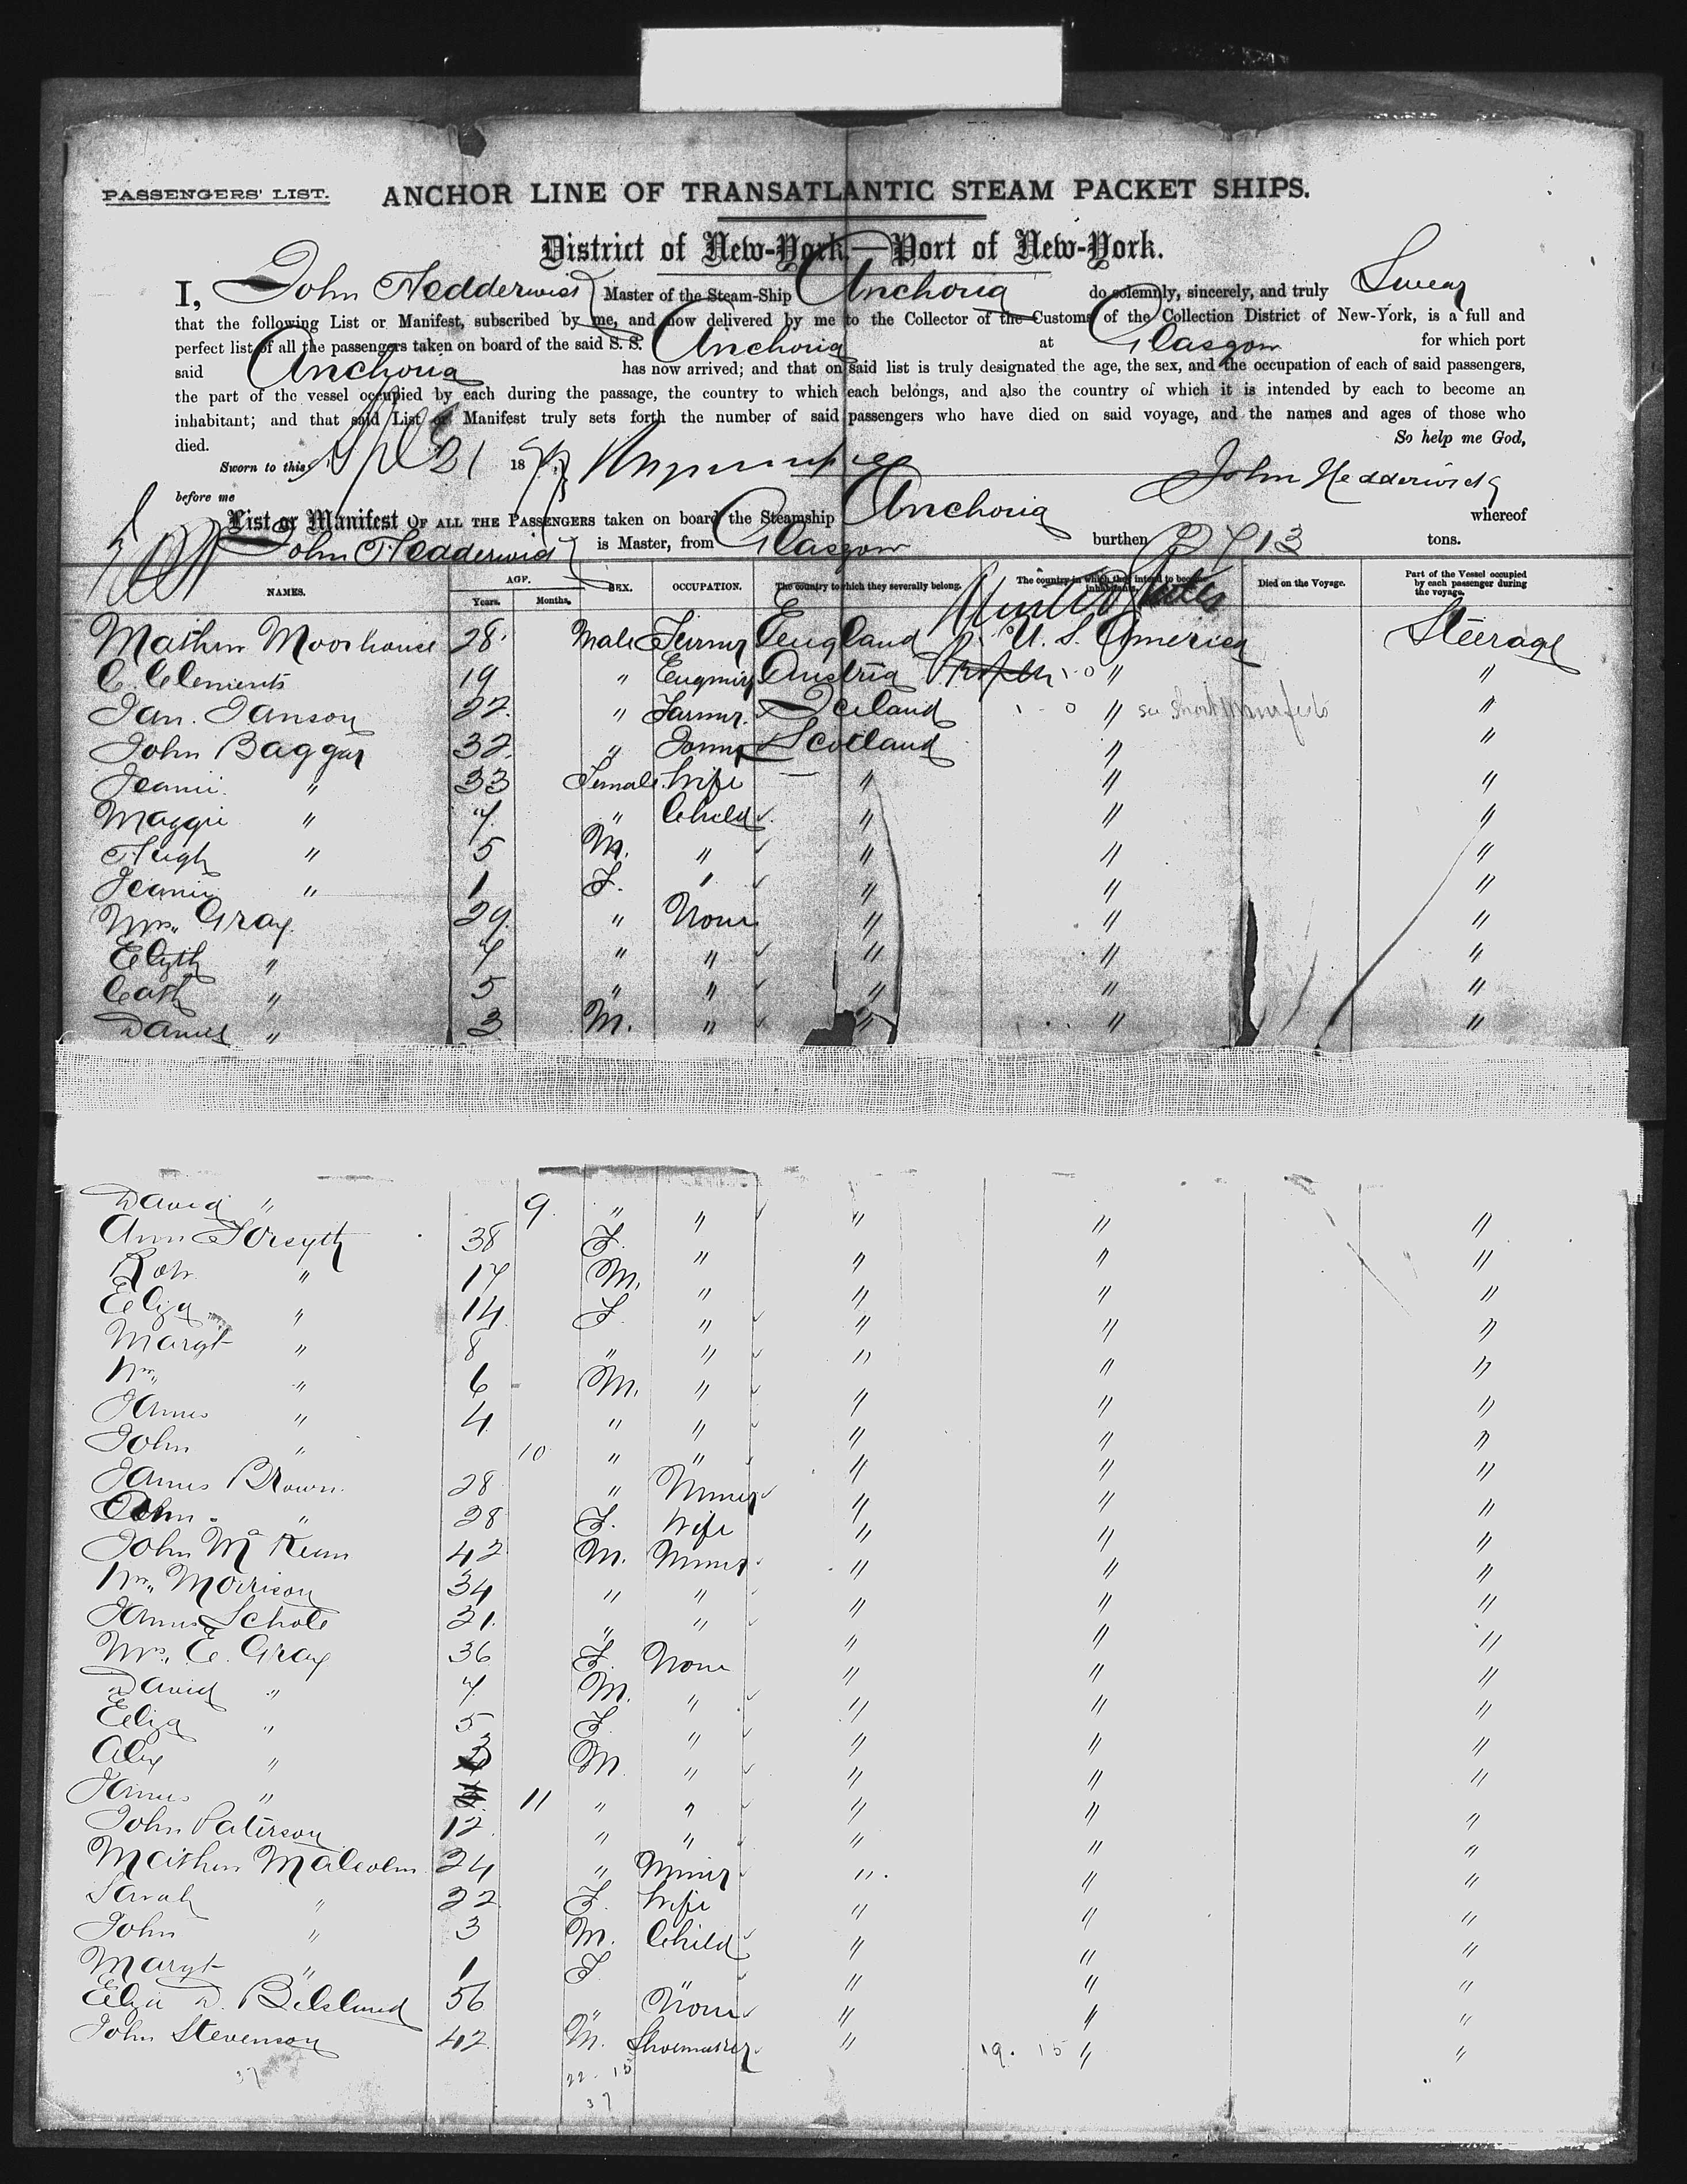 PASSENGERS' LIST. ANCHOR LINE OF TRANSATLANTIC STEAM PACKET SHIPS.
District of New-York,—Port of New-York.
I, John Hedderwick Master of the Steam-Ship Anchoria do solemnly, sincerely, and truly Swear
that the following List or Manifest, subscribed by me, and now delivered by me to the Collector of the Customs of the Collection District of New-York, is a full and
perfect list of all the passengers taken on board of the said S. S. Anchoria at Glasgow for which port
said Anchoria has now arrived; and that on said list is truly designated the age, the sex, and the occupation of each of said passengers,
the part of the vessel occupied by each during the passage, the country to which each belongs, and also the country of which it is intended by each to become an
inhabitant; and that said List or Manifest truly sets forth the number of said passengers who have died on said voyage, and the names and ages of those who
died. So help me God,
Sworn to this 21 18
John Hedderwick
before me
List or Manifest OF ALL THE PASSENGERS taken on board the Steamship Anchoria whereof
John Hedderwick is Master, from Glasgow burthen 2713 tons.
NAMES. AGE. Years. Months. SEX. OCCUPATION. The country to which they severally belong. The country in which they intend to become inhabitants. Died on the Voyage. Part of the Vessel occupied by each passenger during the voyage.
United States
Mathew Moorhouse 28 Male Farmer England U. S. America Steerage
C. Clements 19 " Austria " "
Jan. Janson 22 " Farmer Iceland " see Short Manifest "
John Baggar 32 " Scotland " "
Jeanie " 33 Female Wife " " "
Maggie " 7 " Child " " "
Hugh " 5 M. " " " "
Jeanie " 1 F. " " " "
Mrs. Gray 29 " None " " "
Elizth " 7 " " " " "
Cath " 5 " " " " "
Daniel " 3 M. " " " "
David " 9 " " " " "
Ann Forsyth 38 F. " " " "
Robt " 17 M. " " " "
Eliza " 14 F. " " " "
Margt " 8 " " " " "
Wm " 6 M. " " " "
James " 4 " " " " "
John " 10 " " " " "
James Brown 28 " Miner " " "
" 28 F. Wife " " "
John McKean 42 M. Miner " " "
Wm. Morrison 34 " " " " "
James 21 " " " " "
Mrs. E. Gray 36 F. None " " "
David " 7 M. " " " "
Eliza " 5 F. " " " "
Alex " 3 M. " " " "
James " 11 " " " " "
John Paterson 12 " " " " "
Mathew Malcolm 24 " Miner " " "
Sarah " 22 F. Wife " " "
John " 3 M. Child " " "
Margt " 1 F. " " " "
D. Bilsland 56 " None " " "
John Stevenson 42 M. Shoemaker " 19. 15 " "
37 22. 15 "
37